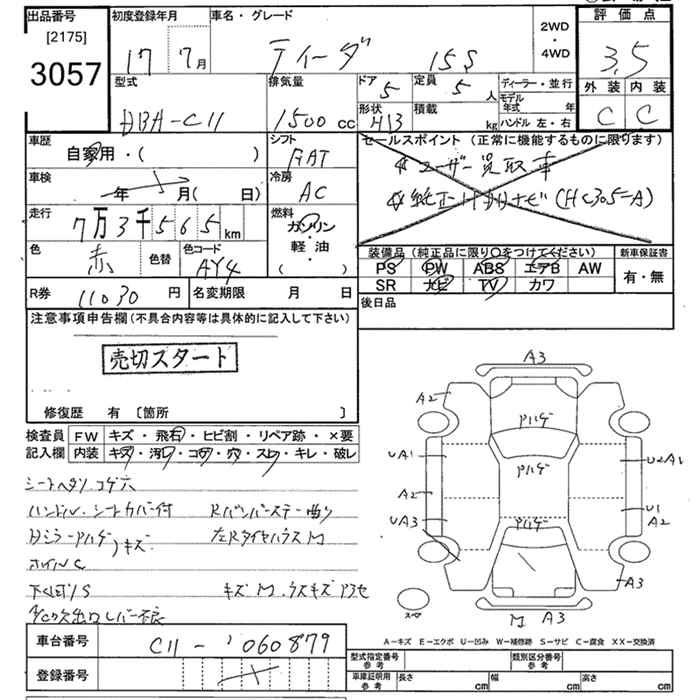 出品番号 初度登録年月 車名・グレード 2WD・4WD 評価点
[2175] 17 7月 ティーダ 15S 3.5
3057
型式 排気量 ドア 5 定員 5人 ディーラー・並行 外装 内装
DBA-C11 1500cc 形状 HB 積載 kg モデル年式 年 ハンドル 左・右 C C
車歴 シフト セールスポイント (正常に機能するものに限ります)
自家用・( ) FAT ユーザー買取車
車検 年 月( 日) 冷房 AC 純正 ナビ(HC305-A)
走行 7万3千565km 燃料 ガソリン 軽・油 ( )
色 赤 色替 色コード AY4 装備品(純正品に限り○をつけてください) 新車保証書
PS PW ABS エアB AW 有・無
SR ナビ TV カワ
R券 11030円 名変期限 月 日 後日品
注意事項申告欄(不具合内容等は具体的に記入して下さい)
売切スタート
修復歴 有 〔箇所 〕
検査員記入欄 FW キズ・飛石・ヒビ割・リペア跡・×要
内装 キズ・汚レ・コゲ・穴・スレ・キレ・破レ
シートヘタリ.コゲ穴
ハンドル.シートカバー付 Rバンパーステー曲り
キズ 左RタイヤハウスM
ホイルC
下くぼみS キズM.ウスキズ アセ
A/C吹出口レバー不良
A3
A2
アハゲ
UA1 U2A1
アハゲ
A2 U1
A2
UA3 アハゲ
A3
M A3
スペア
A-キズ E-エクボ U-凹み W-補修跡 S-サビ C-腐食 XX-交換済
車台番号 C11-060879
登録番号
型式指定番号 参考 類別区分番号 参考
車庫証明用 参考 長さ cm 幅 cm 高さ cm